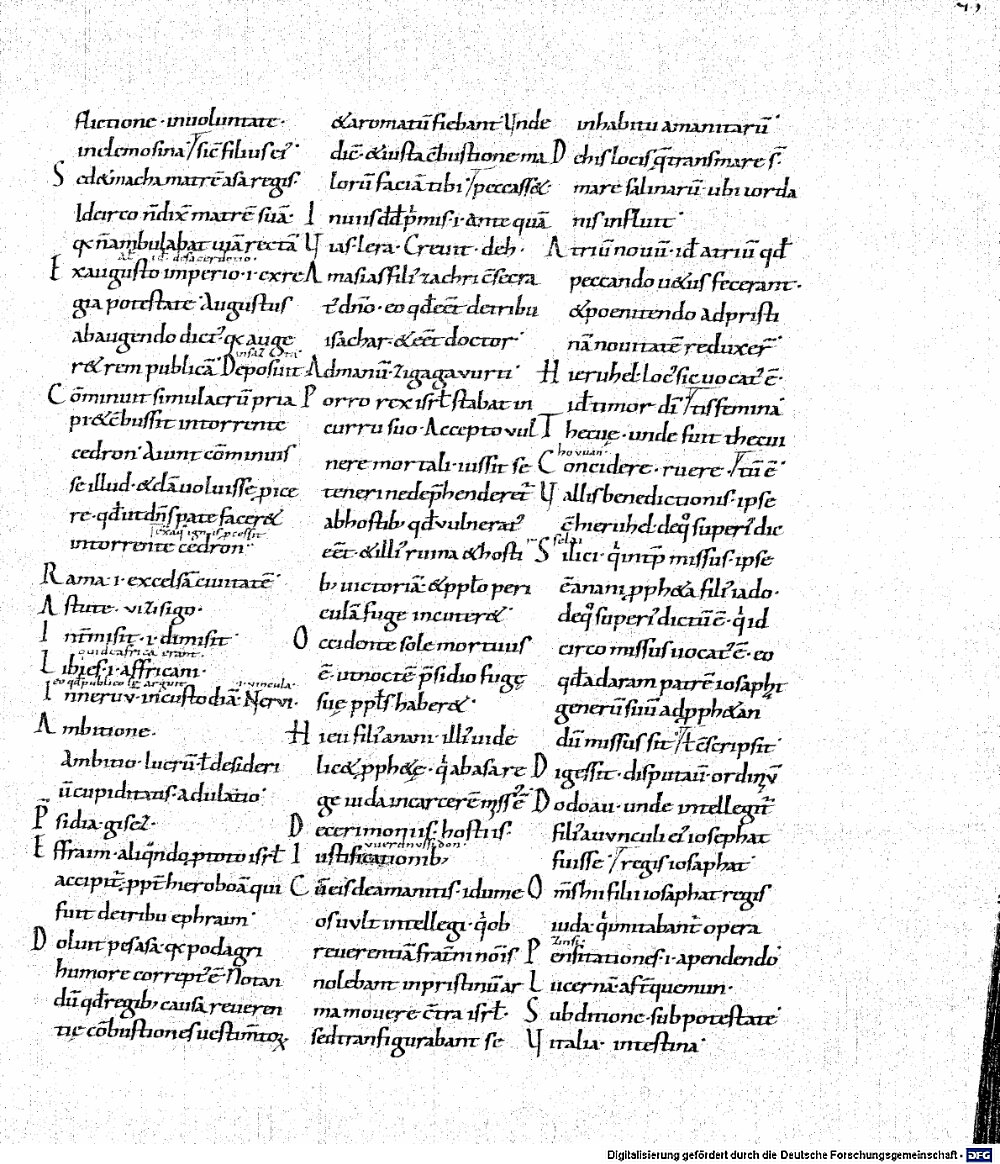 flictione · inuoluntate ·
inelemosina / sic̄ filiuf ei᷒
S ed & macha matrē asa regis ·
Idcirco n̄ dix̄ matrē suā ·
qꝛ n̄ ambulabat uiā rectā
E xaugusto imperio · i · exre
gia potestate Augustus
abaugendo dict᷒ qꝛ auge
r& rem publicā Deposuit
C ōminuit simulacrū pria
pi & c̄bussit intorrente
cedron Aiunt cōminuis
se illud · & dā uoluisse pice
intorrente cedron
R ama · i · excelsā ciuitatē
A stute · uisigo ·
I nmisit · i · dimisit
L ibies · i · affricani ·
I nneruv · incustodiā · Nerui ·
A mbitione ·
Ambitio · lucrū ł desideri
ū cupiditatis · adulatio
P sidia · gisel ·
E ffraim · aliqn̄do ꝓtoto isrł
accipit᷒ · ppt̄ hieroboā qui
fuit detribu ephraim
D oluit pes asa · qꝛ podagri
humore corrept᷒ ē · Notan
dū qđ regib; causa reueren
tię cōbustiones uestim̄toꝝ
& aromatū fiebant Unde
dic̄ · & iusta c̄bustione ma
lorū faciā tibi / peccass&
I nuiis dđ p̄mis · i · ante quā
U ias · lera · Creuit · deh ·
A masias fili᷒ zachri c̄secra
t᷒ dn̄o · eo qđ eēt detribu
isachar · & eēt doctor
A dmanū · zigagavurti
P orro rex isrł stabat in
curru suo · Accepto vul
nere mortali · iussit se
teneri ne dep̄henderet᷒
abhostib; qđ vulnerat᷒
eēt · & illi᷒ ruina & hosti
b; uictoriā · & ppło peri
culā fuge incuter&
O ccidente sole mortuus
ē · ut noctē p̄sidio fugę
suę ppłs haber&
H ieu fili᷒ anani · illi᷒ uide
lic& ꝓph&ę · q̄ abasa re
ge iuda incarcerē miss᷒ ē
D ecerimoniis · hostiis ·
I ustificationib;
C ū eis deamanitis · idume
os vult intellegi · q̄ ob
reuerentiā frat̄ni noīs
nolebant inpristinū ar
ma mouere c̄tra isrł ·
sed transfigurabant se
inhabitu amanitarū
D ehis locis q̄ transmare s̄
mare salinarū · ubi iorda
nis influit
A triū nouū · id atriū qđ
peccando u&us fecerant ·
& poenitendo adpristi
nā nouitatē reduxer᷒
H ieruhel · loc᷒ sic uocat᷒ ē ·
id timor dī / Tis femina
T hecuę · unde fuit thecui
C oncidere · ruere · / tū ē
U allis benedictionis · ipse
ē hieruhel · deq̄ superi᷒ dic
S ilici · q̄ int̄p̄ missus · ipse
ē anani ꝓph&a fili᷒ iado ·
deq̄ superi᷒ dictū ē · q̄ id
circo missus uocat᷒ ē · eo
qđ adaram patrē iosaphat
generū suū ad ꝓph&an
dū missus sit / ł c̄scripsit
D igessit · disputauit · ordinav̄
D odoau · unde intellegit᷒
fili᷒ auunculi ei᷒ iosephat
fuisse / regis iosaphat
O m̄s hii filii iosaphat regis
iuda · q̄ imitabant᷒ opera
P ensitationes · i · apendendo
L ucernā · aft̄ quemuni ·
S ubditione · sub potestate
U italia · intestina